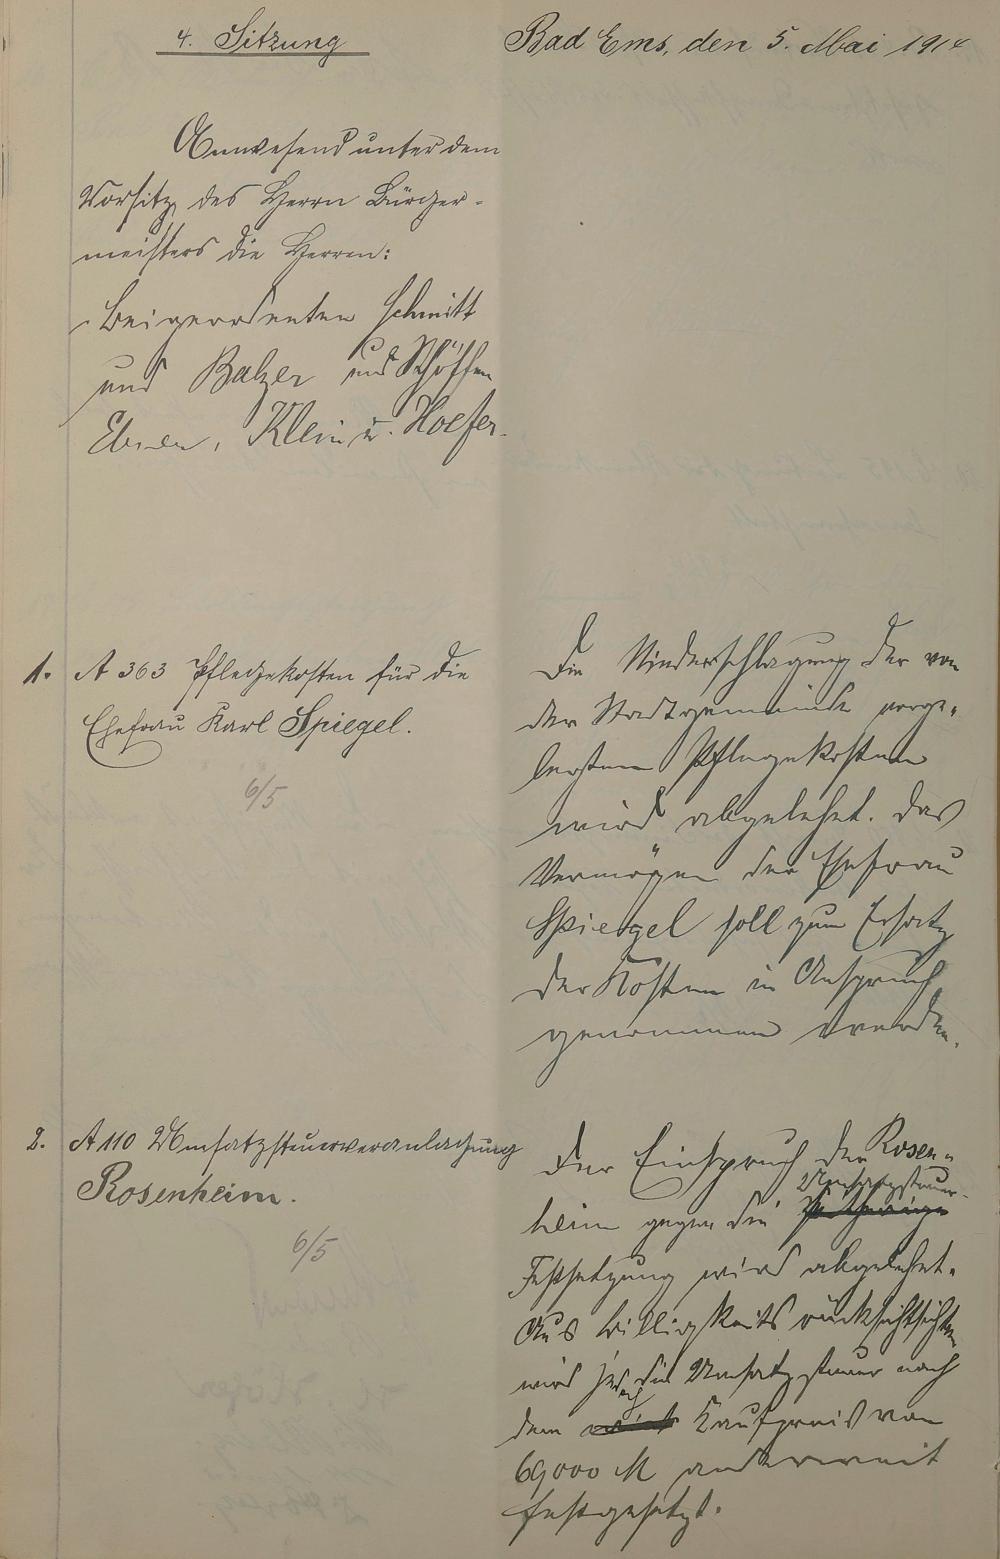 4. Sitzung
Bad Ems, den 5. Mai 1914
Anwesend unter dem
Vorsitz des Herrn Bürger-
meisters die Herren:
Beigeordenten Schmitt
und Balzer und Schöffen
Klein u. Hoefer.
1. A 363 Pflegekosten für die
Ehefrau Karl Spiegel.
6/5
Die Niederschlagung der von
der Stadtgemeinde vorge-
legten Pflegekosten
wird abgelehnt. Das
Vermögen der Ehefrau
Spiegel soll zum Ersatz
der Kosten in Anspruch
genommen werden.
2. A 110 Umsatzsteuerveranlagung
Rosenheim.
6/5
Der Einspruch der Rosen-
heim gegen die Umsatzsteuer-
Festsetzung wird abgelehnt.
Aus Billigkeits
wird jedoch die Umsatzsteuer nach
dem Kaufpreis von
69000 M anderweit
festgesetzt.